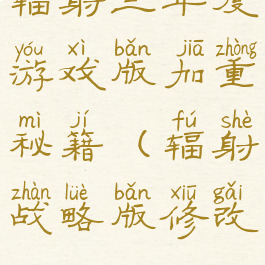 辐射三年度
yóu xì bǎn jiā zhòng
游戏版加重
mì jí fú shè
秘籍（辐射
zhàn lüè bǎn xiū gǎi
战略版修改